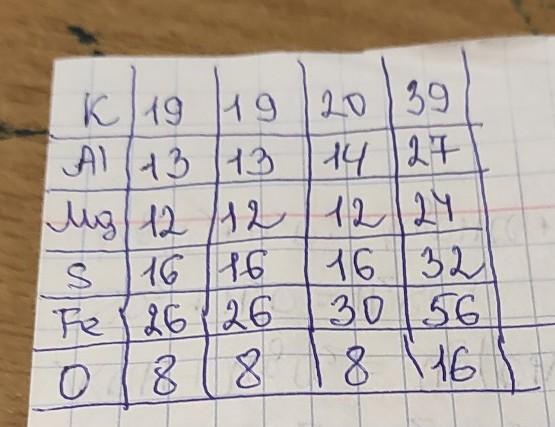 K 19 19 20 39
Al 13 13 14 27
Mg 12 12 12 24
S 16 16 16 32
Fe 26 26 30 56
O 8 8 8 16